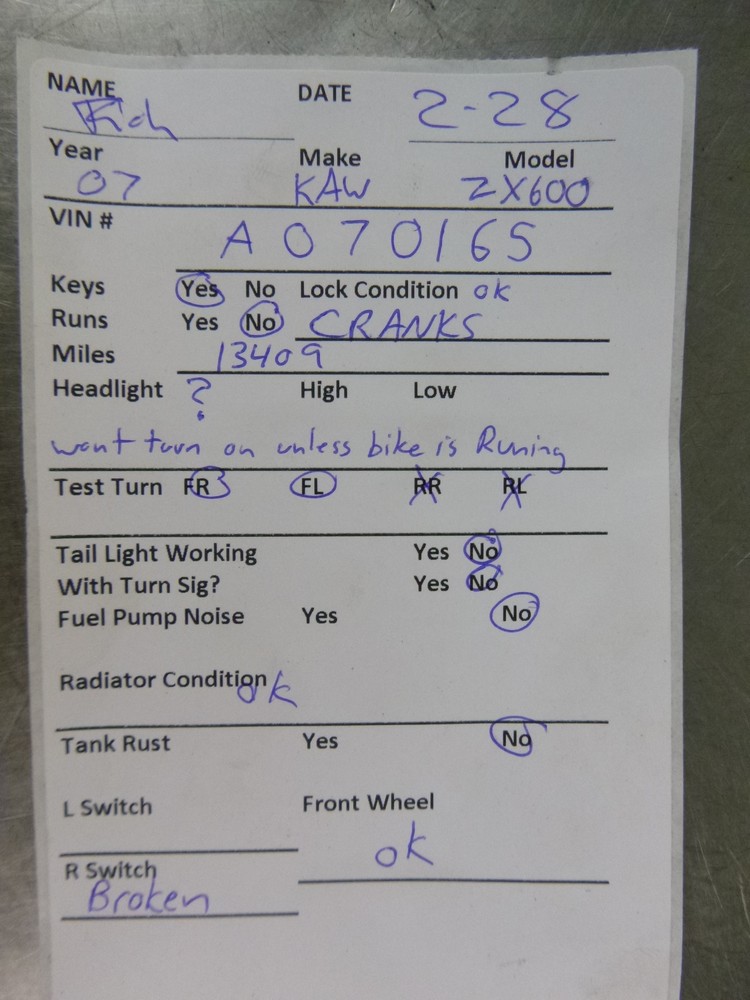 NAME DATE 2-28
Rich
Year Make Model
07 KAW ZX600
VIN #
A070165
Keys Yes No Lock Condition ok
Runs Yes No CRANKS
Miles 13409
Headlight ? High Low
wont turn on unless bike is Runing
Test Turn FR FL RR RL
Tail Light Working Yes No
With Turn Sig? Yes No
Fuel Pump Noise Yes No
Radiator Condition ok
Tank Rust Yes No
L Switch Front Wheel
ok
R Switch
Broken